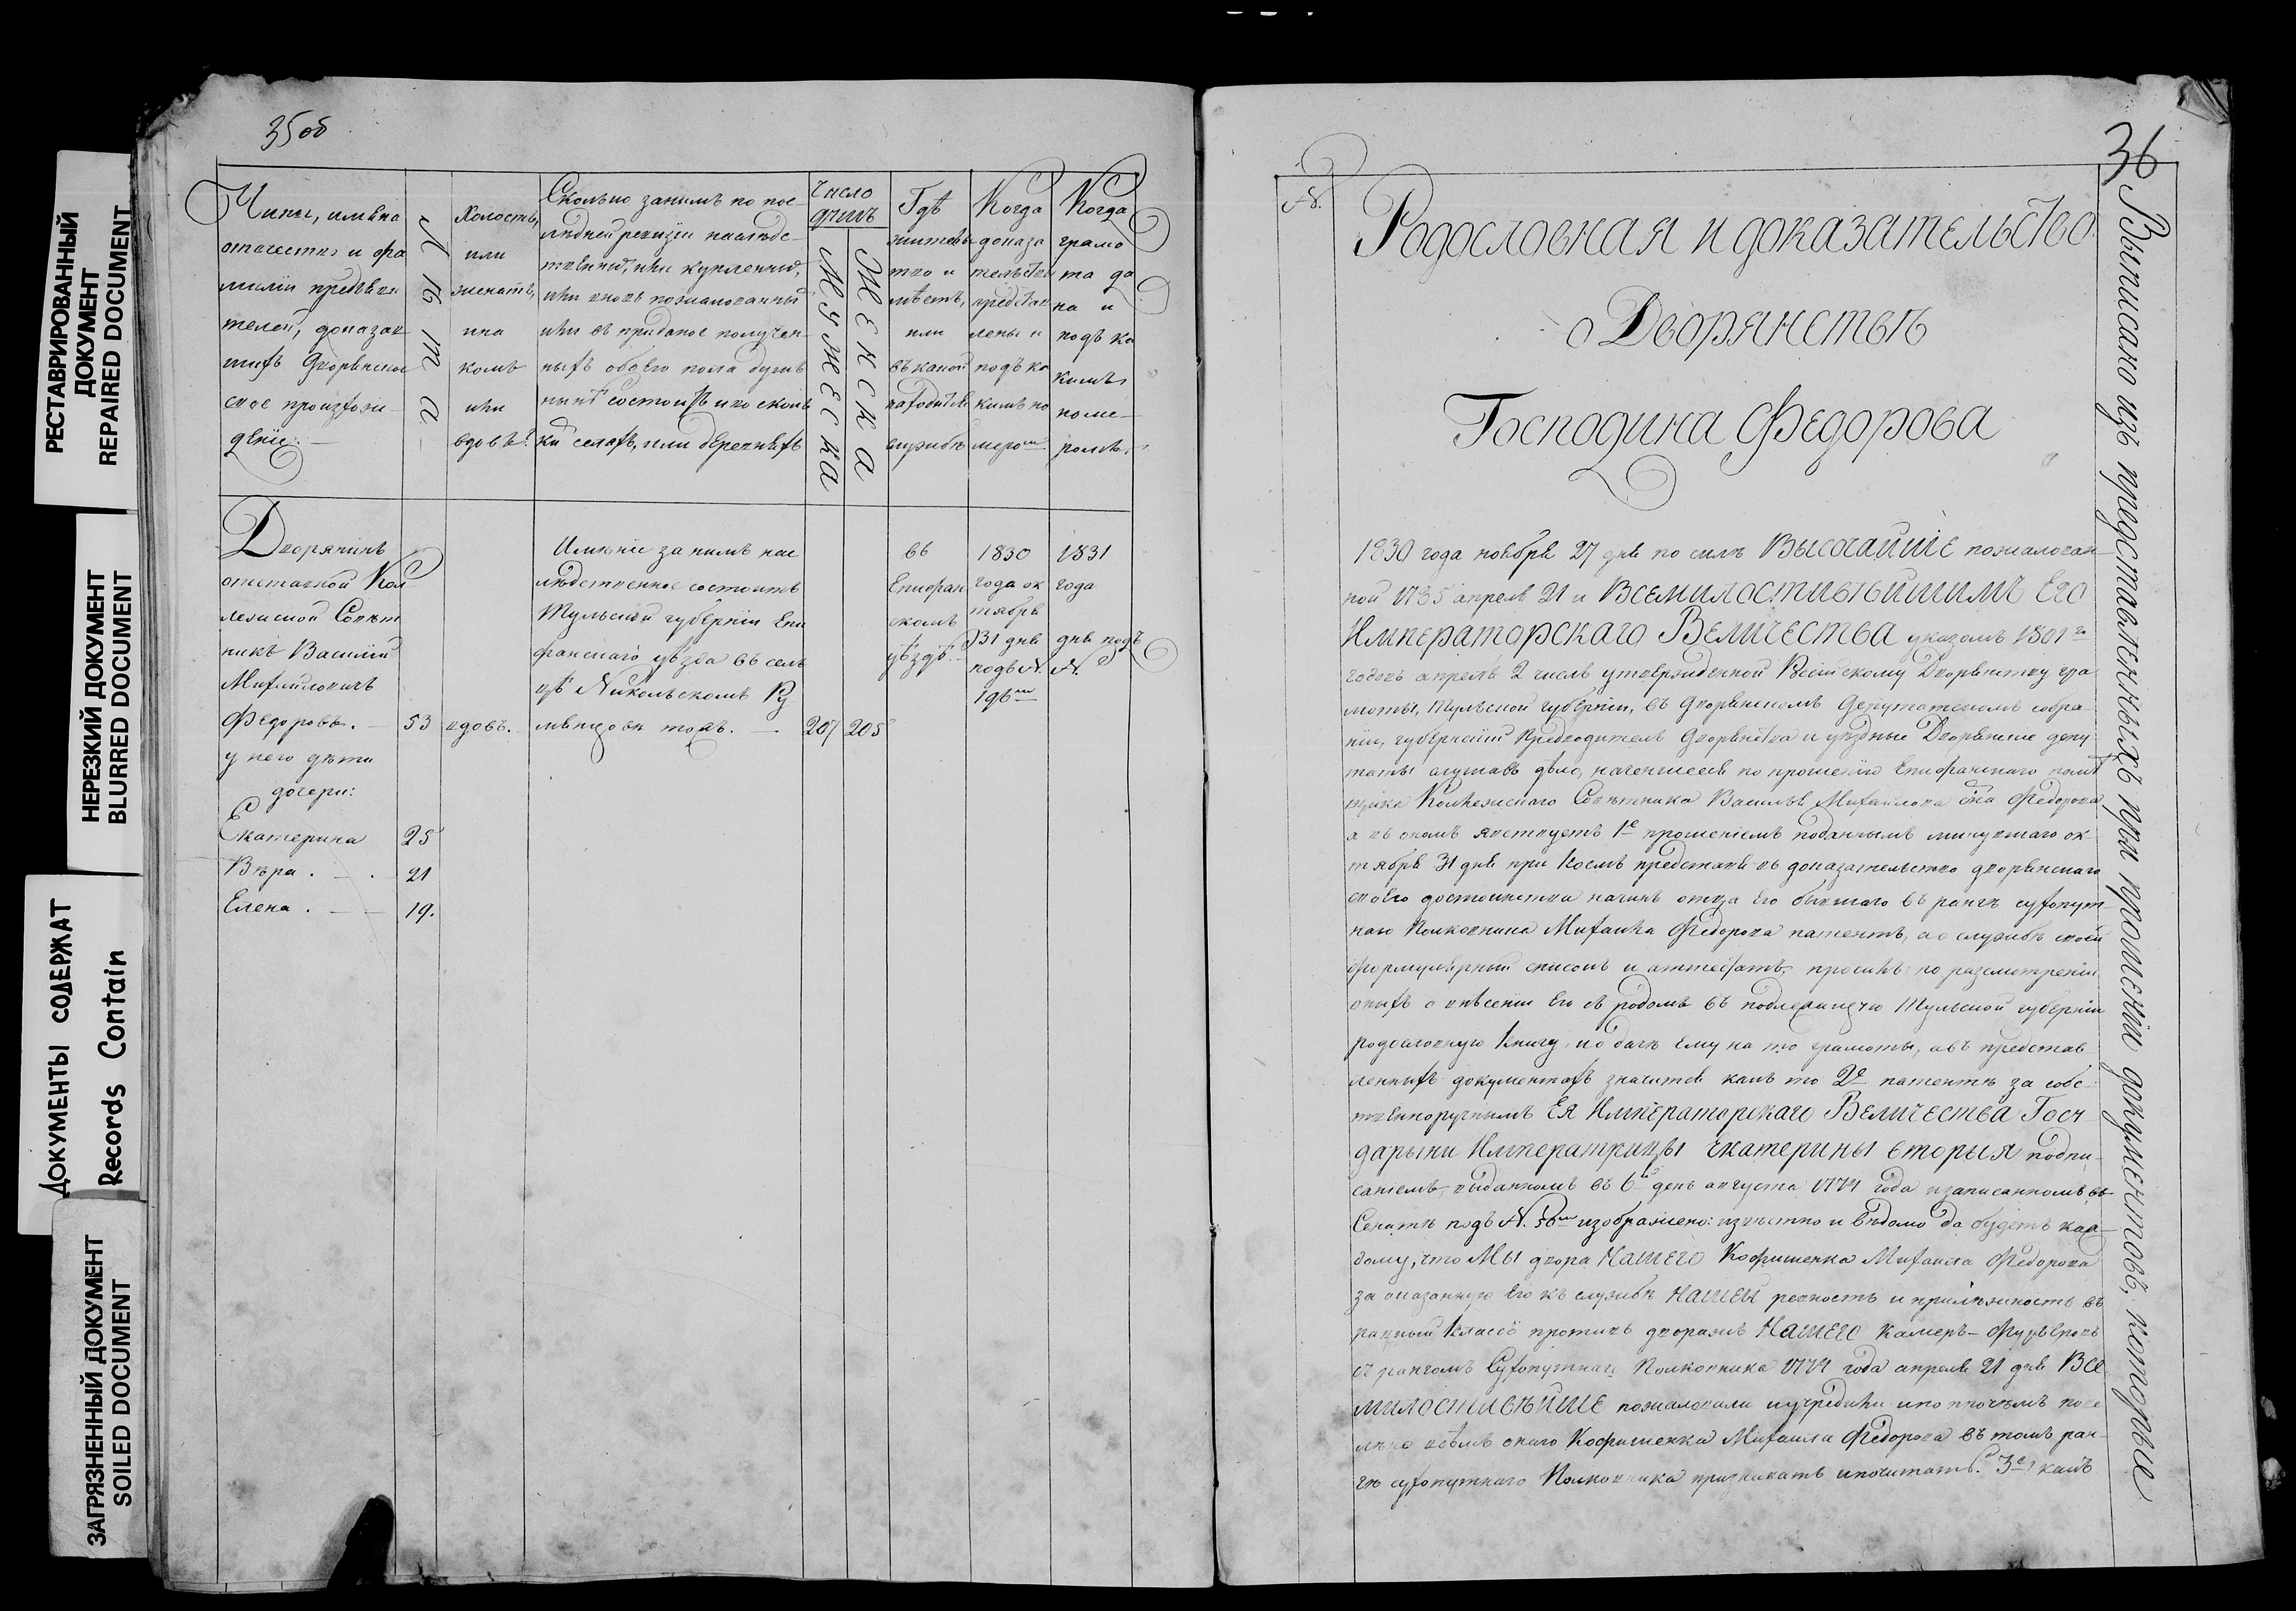 РЕСТАВРИРОВАННЫЙ
ДОКУМЕНТ
REPAIRED DOCUMENT
НЕРЕЗКИЙ ДОКУМЕНТ
BLURRED DOCUMENT
ДОКУМЕНТЫ СОДЕРЖАТ
Records Contain
ЗАГРЯЗНЕННЫЙ ДОКУМЕНТ
SOILED DOCUMENT
35об
Чины, имѣна
отечество и фа
миліи предъяви
телей, доказав
шихъ дворянское
свое происхож-
деніе.
Лѣта
Холостъ,
или
женатъ,
и на
комъ
или
вдовъ.
Сколько за нимъ по пос-
лѣдней ревизіи наслѣдс-
твенныхъ, или купленныхъ,
или вновь пожалованныхъ
или въ приданое получен-
ныхъ обоего пола душъ
нынѣ состоитъ и во сколь
кихъ селахъ, или деревняхъ
Число
душъ
Мужеска
Женска
Гдѣ
жительс
тво и
мѣстъ,
или
въ какой
находится
службѣ
Когда
доказа
тельства
представ
лены и
подъ ка
кимъ но
меромъ
Когда
грамо
та да
на и
подъ ка
кимъ
номе-
ромъ.
Дворянинъ
отставной Кол
лежской Совѣт
никъ Василій
Михайловичъ
Федоровъ.
53
вдовъ.
Имѣніе за нимъ нас
лѣдственное состоитъ
Тульской губерніи Епи
фанскаго уѣзда въ сель
цѣ Никольскомъ Ру
мянцовѣ тожъ.
207
205
въ
Епифан
скомъ
уѣздѣ
1830
года ок
тября
31 дня
подъ №.
196м
1831
года
дня подъ
№.
у него дѣти
дочери:
Екатерина 25
Вѣра 21
Елена 19.
36
№.
Родословная и доказательство
о Дворянствѣ
Господина Федорова
1830 года ноября 27 дня по силѣ Высочайше пожалован-
ной 1785 апреля 21 и Всемилостивѣйшимъ Его
Императорскаго Величества указомъ 1801го
года апреля 2 числа утвержденной Россійскому Дворянству гра
моты, Тульской губерніи, въ дворянскомъ депутатскомъ собра-
ніи, губернскій предводитель дворянства и уѣздные Дворянскіе депу
таты слушавъ дѣло, начавшееся по прошенію Епифанскаго помѣ
щика Коллежскаго Совѣтника Василья Михайлова сна Федорова
а въ ономъ явствуетъ 1е прошеніемъ поданнымъ минувшаго ок-
тября 31 дня при коемъ представя въ доказательство дворянскаго
своего достоинства на чинъ отца его бывшаго въ рангѣ сухопут-
наго Полковника Михаила Федорова патентъ, а о службѣ своей
формулярный списокъ и аттестатъ, проситъ по разсмотреніи
оныхъ о внесеніи Его съ родомъ въ подлежащую Тульской губерніи
родословную Книгу, и о дачѣ ему на то грамоты, а въ представ
ленныхъ документахъ значится какъ то 2е патентѣ за собс-
твенноручнымъ Ея Императорскаго Величества Госу
дарыни Императрицы Екатерины вторыя подпи-
саніемъ, выданномъ въ 6й день августа 1774 года и записанномъ въ
Сенатѣ подъ №. 56м изображено: извѣстно и вѣдомо да будетъ каж-
дому, что Мы двора Нашего Кофишенка Михаила Федорова
за оказанную Его къ службѣ Нашей ревность и прилѣжность въ
равный классъ противъ двора Нашего камеръ-фурьеровъ
съ рангомъ Сухопутнаго Полковника 1774 года апреля 21 дня Все
милостивѣйше пожаловали и учредили
онаго Кофишенка Михаила Федорова въ томъ ран-
гѣ сухопутнаго Полковника признавать и почитать. 3е какъ
Выписано изъ представленныхъ при прошеніи документовъ, которые